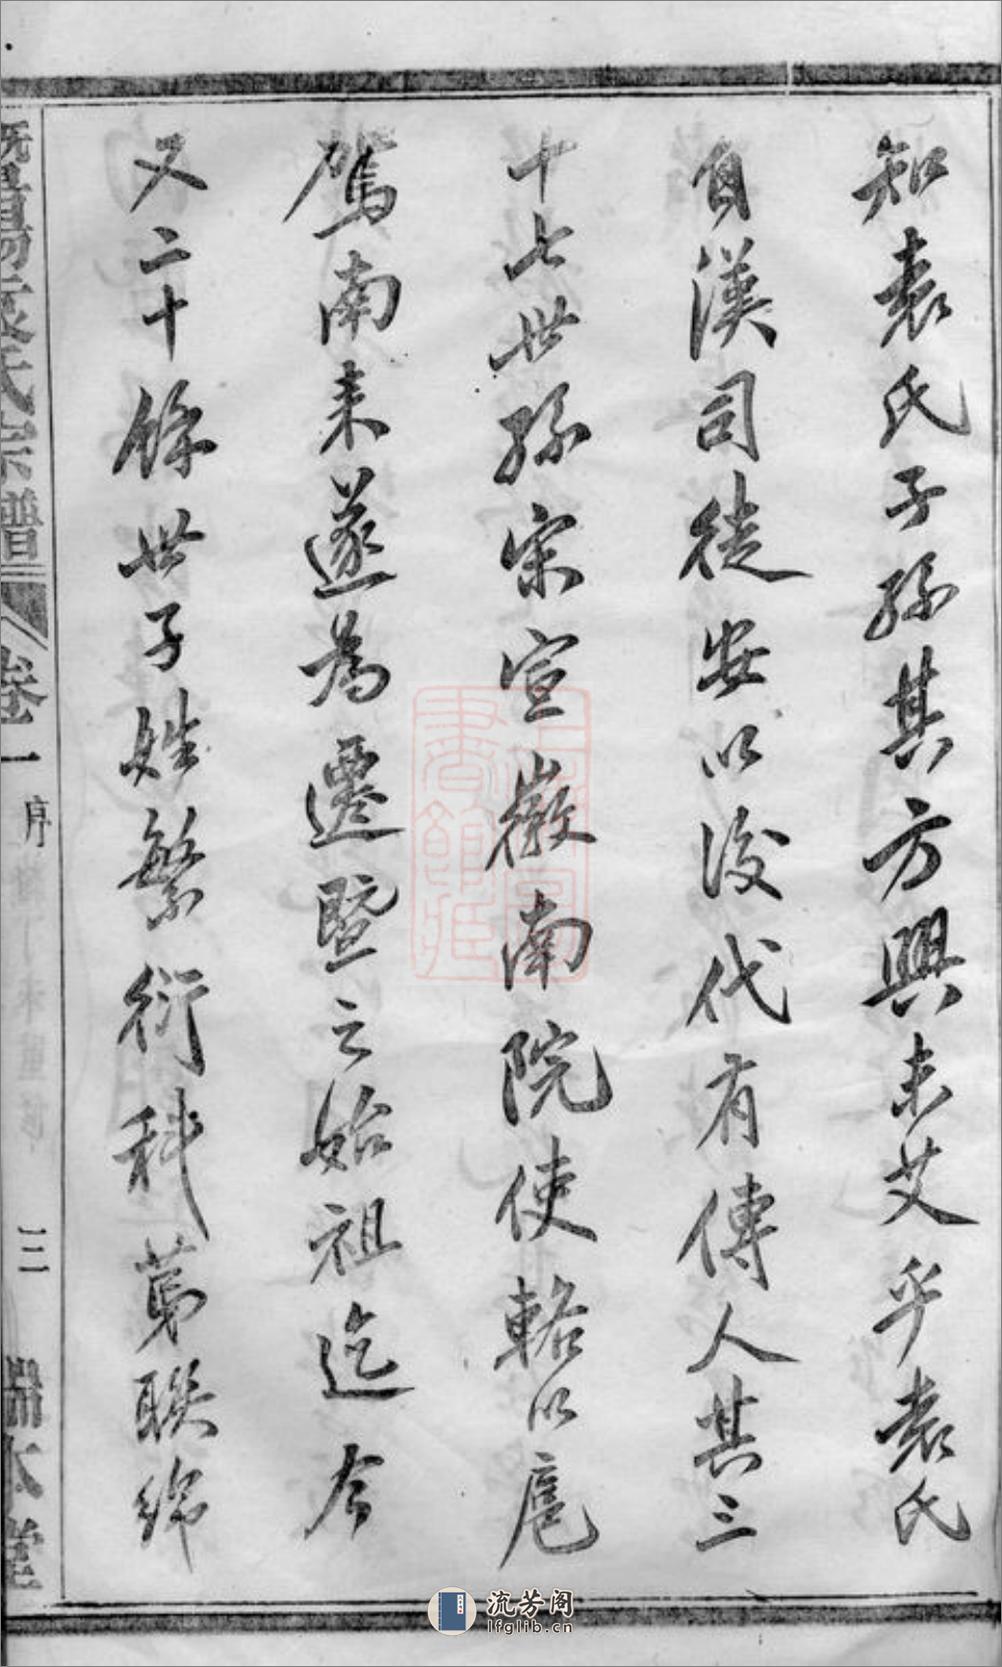 知袁氏子孫其方興未艾乎袁氏
自漢司徒安以後代有傳人其三
十七世孫宋宣徽南院使轄以扈
駕南来遂為遷暨之始祖迄今
又二十餘世子姓繁衍科第聯綿
暨陽袁氏宗譜 卷一 序 三
流芳阁
lfglib.cn